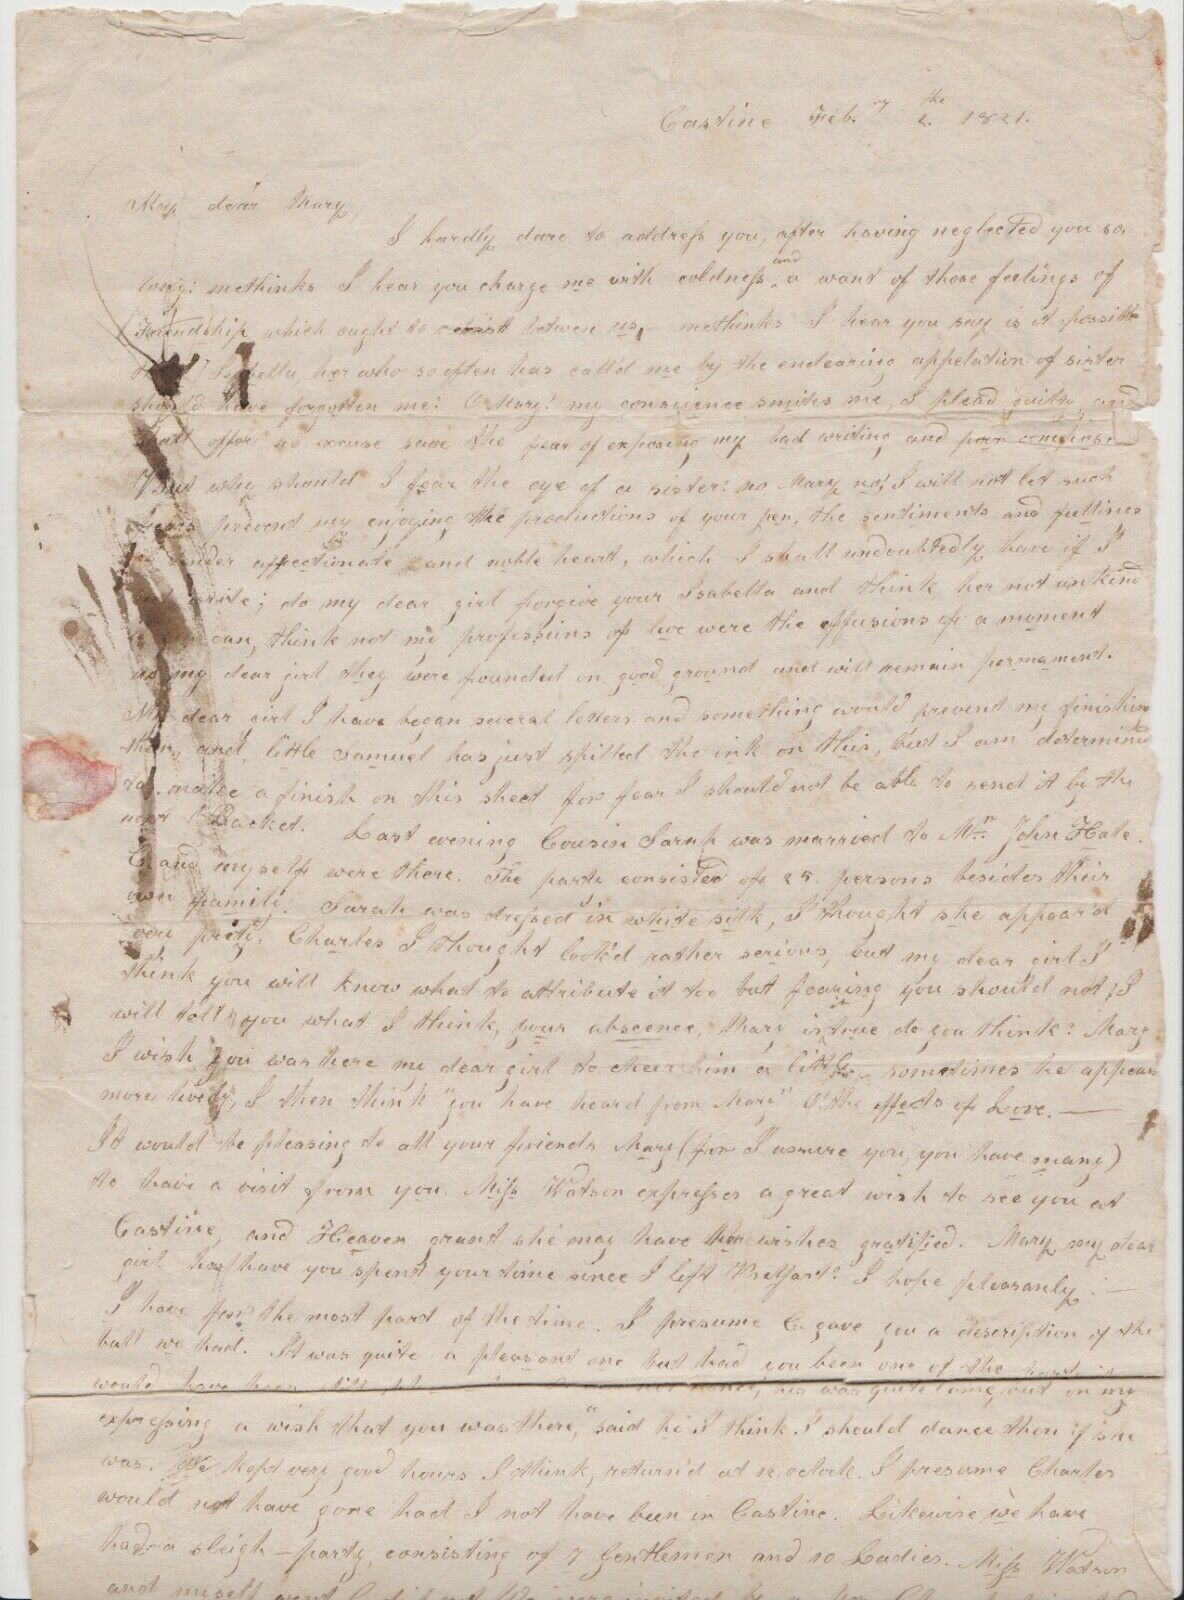 Castine Feb.ry 2.the 1821.
My dear Mary,
I hardly dare to address you, after having neglected you so
long: methinks I hear you charge me with coldness and a want of those feelings of
Friendship which ought to exist between us, methinks I hear you say is it possible
Isabella, her who so often has call'd me by the endearing appelation of sister
should have forgotten me? O Mary! my conscience smites me, I plead guilty, and
shall offer no excuse save the fear of exposing my bad writing and poor
But why should I fear the eye of a sister! no Mary no! I will not let such
fears prevent my enjoying the productions of your pen, the sentiments and feelings
tender affectionate and noble heart, which I shall undoubtedly have if I
write; do my dear girl forgive your Isabella and think her not unkind
if you can, think not my professions of love were the effusions of a moment
no my dear girl they were founded on good ground and will remain permament.
My dear girl I have began several letters and something would prevent my finishing
them, and little Samuel has just spilled the ink on this, but I am determin'd
to make a finish on this sheet for fear I should not be able to send it by the
next Packet. Last evening Cousin Sarah was married to Mr. John Hale.
C. and myself were there. The parti consisted of 25 persons besides their
own famili. Sarah was dressed in white silk, I thought she appear'd
very preti. Charles I thought look'd rather serious, but my dear girl I
think you will know what to attribute it too but fearing you should not, I
will tell you what I think, your abscence, Mary is it true do you think? Mary
I wish you was here my dear girl to cheer him a little sometimes he appears
more lively, I then think "you have heard from Mary" O! the effects of Love. —
It would be pleasing to all your friends Mary (for I assure you, you have many)
to have a visit from you. Miss Watson expresses a great wish to see you at
Castine, and Heaven grant she may have her wishes gratified. Mary my dear
girl how have you spent your time since I left Belfast? I hope pleasantly. —
I have for the most part of the time. I presume C. gave you a description of the
ball we had. It was quite a pleasant one but had you been one of the
would have been his was quite lame, but on my
expressing a wish that you was there, "said he I think I should dance then if she
was. We kept very good hours I think, return'd at 12. oclock. I presume Charles
would not have gone had I not have been in Castine. Likewise we have
had a sleigh-party, consisting of 7 Gentlemen and 10 Ladies. Miss Watson
and myself went